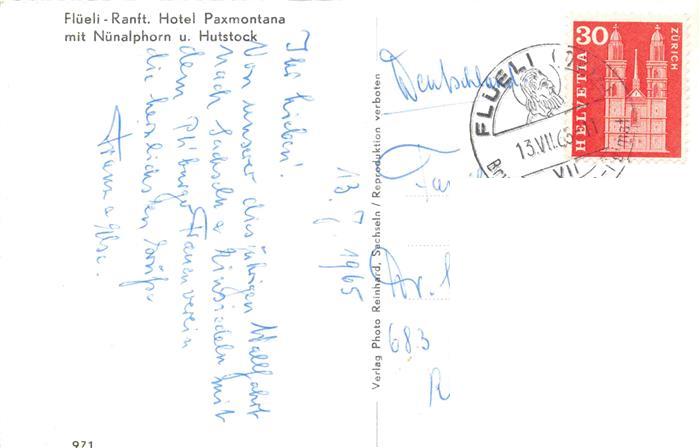 Flüeli - Ranft. Hotel Paxmontana
mit Nünalphorn u. Hutstock
13. 7. 1965
Ihr Lieben!
Von unserer diesjährigen Wallfahrt
nach Sachseln u Einsiedeln mit
dem Frauenverein
die herzlichsten Grüße
Franz u Else.
971
Verlag Photo Reinhard, Sachseln / Reproduktion verboten
Deutschland
683
R
FLÜELI
13.VII.65
VII
30
HELVETIA
ZÜRICH